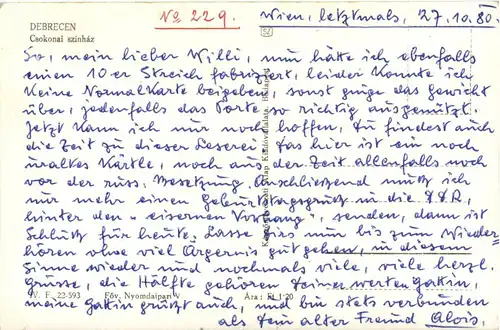 DEBRECEN
Csokonai színház
No 229.
Wien, letztmals, 27.10.80.
So, mein lieber Willi, nun hätte ich ebenfalls
einen 10er Streich fabriziert, leider konnte ich
keine Normalkarte beigeben, sonst ginge das Gewicht
über, jedenfalls das Porto so richtig ausgenützt.
Jetzt kann ich nur noch hoffen, du findest auch
die Zeit zu dieser Leserei. Das hier ist ein noch
uraltes Kärtle, noch aus der Zeit allenfalls noch
vor der russ. Besetzung. Anschließend muß ich
nur mehr einen Geburtstagsgruß in die DDR,
hinter den "eisernen Vorhang", senden, dann ist
Schluß für heute. Lasse dirs nun bis zum Wieder-
hören ohne viel Ärgernis gut gehen, in diesem
Sinne wieder und nochmals viele, viele herzl.
Grüsse, die Hälfte gehören deiner werten Gattin,
meine Gattin grüßt auch, und bin stets verbunden
als dein alter Freund Alois.
Képzőművészeti Alap Kiadóvállalata, Budapest
V. F. 22-593
Főv. Nyomdaipari V
Ára: Ft 1·20